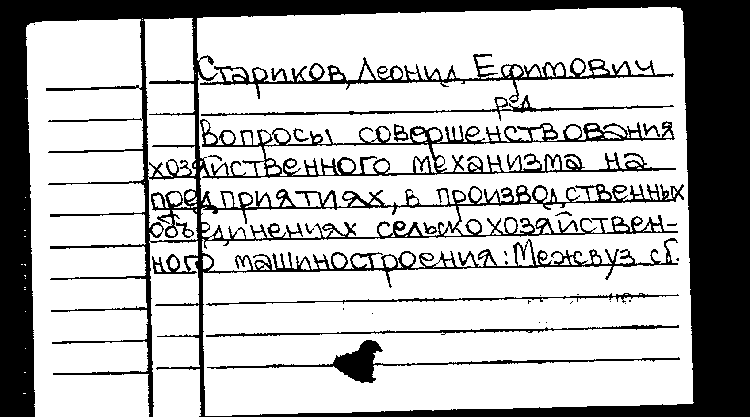 Стариков, Леонид Ефимович
ред.
Вопросы совершенствования
хозяйственного механизма на
предприятиях, в производственных
объединениях сельскохозяйствен-
ного машиностроения: Межвуз сб.